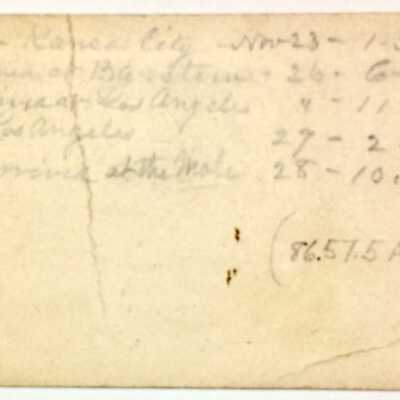 - Kansas City - Nov 23 - 1-3
at Barstow - 26 - 6-
at Los Angeles " - 11
Los Angeles 27 - 2
Arrived at the Mole 28 - 10.
(86.57.5 A